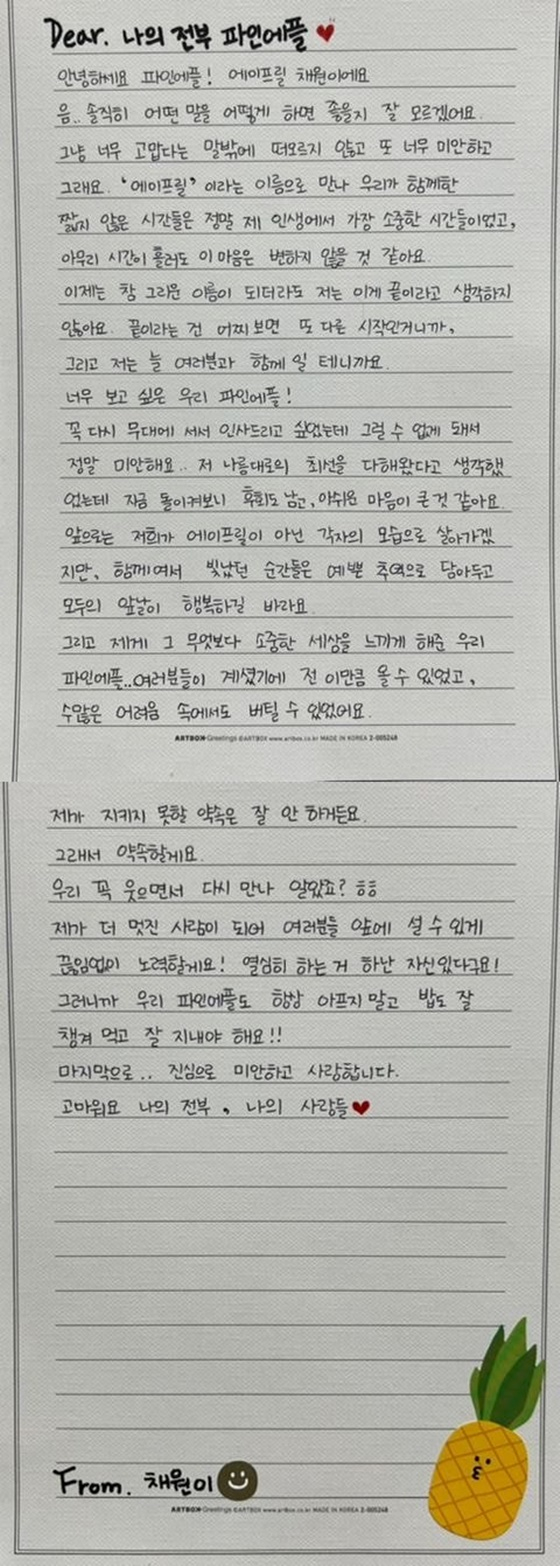 Dear. 나의 전부 파인애플 ♥
안녕하세요 파인에플! 에이프릴 채원이에요
음.. 솔직히 어떤 말을 어떻게 하면 좋을지 잘 모르겠어요.
그냥 너무 고맙다는 말밖에 떠오르지 않고 또 너무 미안하고
그래요. '에이프릴' 이라는 이름으로 만나 우리가 함께한
짧지 않은 시간들은 정말 제 인생에서 가장 소중한 시간들이었고,
아무리 시간이 흘러도 이 마음은 변하지 않을 것 같아요.
이제는 참 그리운 이름이 되더라도 저는 이게 끝이라고 생각하지
않아요. 끝이라는 건 어찌보면 또 다른 시작인거니까,
그리고 저는 늘 여러분과 함께 일 테니까요.
너무 보고 싶은 우리 파인에플!
꼭 다시 무대에 서서 인사드리고 싶었는데 그럴 수 없게 돼서
정말 미안해요.. 저 나름대로의 최선을 다해왔다고 생각했
었는데 지금 돌이켜보니 후회도 남고, 아쉬운 마음이 큰 것 같아요.
앞으로는 저희가 에이프릴이 아닌 각자의 모습으로 살아가겠
지만, 함께여서 빛났던 순간들은 예쁜 추억으로 담아두고
모두의 앞날이 행복하길 바라요.
그리고 제게 그 무엇보다 소중한 세상을 느끼게 해준 우리
파인에플..여러분들이 계셨기에 전 이만큼 올 수 있었고,
수많은 어려움 속에서도 버틸 수 있었어요.
ARTBOX Greetings ©ARTBOX www.artbox.co.kr MADE IN KOREA 2-005248
제가 지키지 못할 약속은 잘 안 하거든요.
그래서 약속할게요.
우리 꼭 웃으면서 다시 만나 알았죠? ㅎㅎ
제가 더 멋진 사람이 되어 여러분들 앞에 설 수 있게
끊임없이 노력할게요! 열심히 하는 거 하난 자신있다구요!
그러니까 우리 파인에플도 항상 아프지 말고 밥도 잘
챙겨 먹고 잘 지내야 해요!!
마지막으로.. 진심으로 미안하고 사랑합니다.
고마워요 나의 전부, 나의 사랑들♥
From. 채원이
ARTBOX Greetings ©ARTBOX www.artbox.co.kr MADE IN KOREA 2-005248